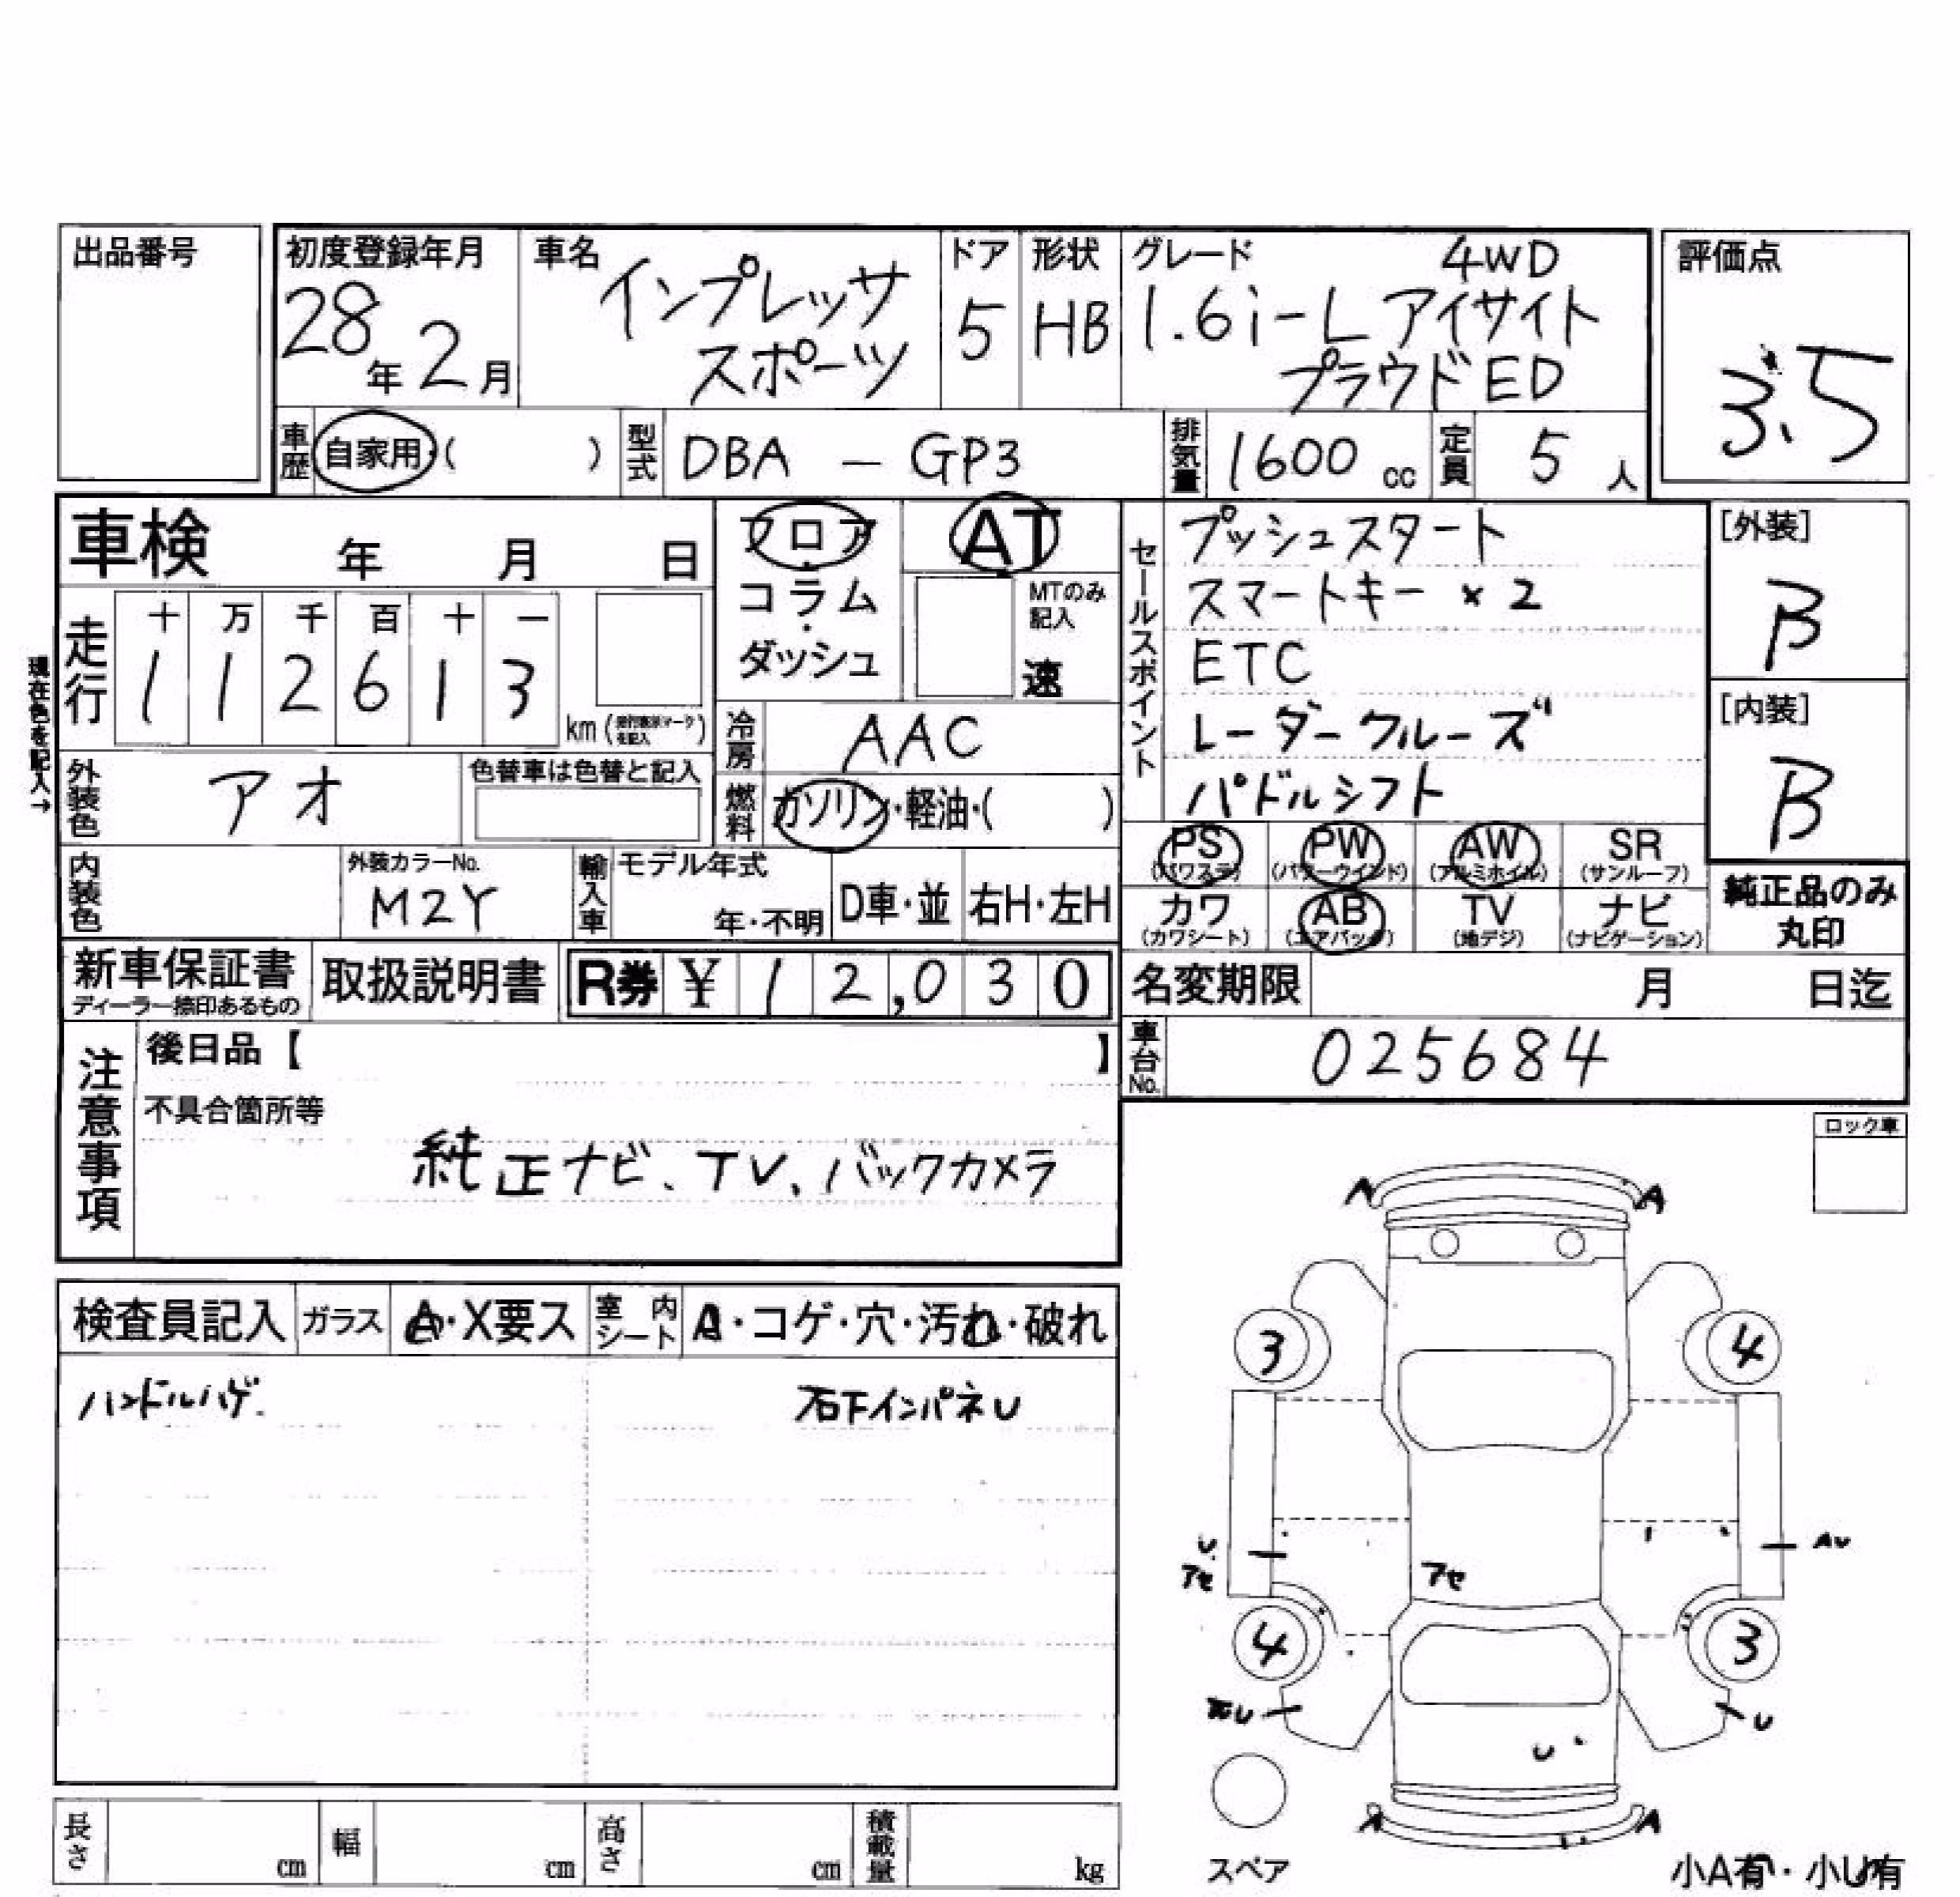 出品番号
初度登録年月
28年2月
車名
インプレッサ
スポーツ
ドア
5
形状
HB
グレード
4WD
1.6i-L アイサイト
プラウドED
評価点
3.5
車歴
自家用・( )
型式
DBA - GP3
排気量
1600 cc
定員
5 人
車検 年 月 日
フロア・
コラム・
ダッシュ
AT
MTのみ
記入
速
セールスポイント
プッシュスタート
スマートキー ×2
ETC
レーダークルーズ
パドルシフト
[外装]
B
[内装]
B
現在色を記入→
走行
十 万 千 百 十 一
1 1 2 6 1 3
km (
)
冷房
AAC
外装色
アオ
色替車は色替と記入
燃料
ガソリン・軽油・( )
PS
(パワステ)
PW
(パワーウインド)
AW
(アルミホイル)
SR
(サンルーフ)
内装色
外装カラーNo.
M2Y
輸入車
モデル年式
年・不明
D車・並
右H・左H
カワ
(カワシート)
AB
(エアバッグ)
TV
(地デジ)
ナビ
(ナビゲーション)
純正品のみ
丸印
新車保証書
ディーラー捺印あるもの
取扱説明書
R券 ¥ 12,030
名変期限 月 日迄
車台No.
025684
注意事項
後日品【 】
不具合箇所等
純正ナビ、TV、バックカメラ
ロック車
検査員記入
ガラス
A・X要ス
室内シート
A・コゲ・穴・汚れ・破れ
ハンドルハゲ.
右下インパネU
A A
3 4
U
アセ
アセ
AU
4 3
U
U
A A
スペア
小A有・小U有
長さ cm
幅 cm
高さ cm
積載量 kg